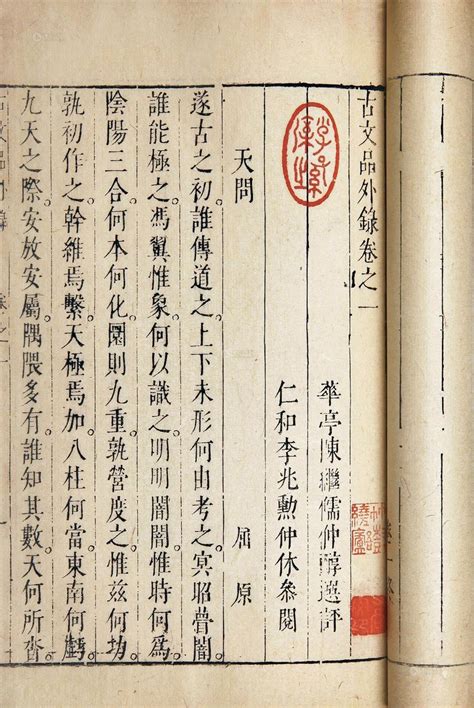 古文品外錄卷之一
華亭陳繼儒仲醇選評
仁和李兆勳仲休參閱
天問 屈原
遂古之初誰傳道之上下未形何由考之冥昭瞢闇
誰能極之馮翼惟象何以識之明明闇闇惟時何為
陰陽三合何本何化圜則九重孰營度之惟茲何功
孰初作之幹維焉繫天極焉加八柱何當東南何虧
九天之際安放安屬隅隈多有誰知其數天何所沓